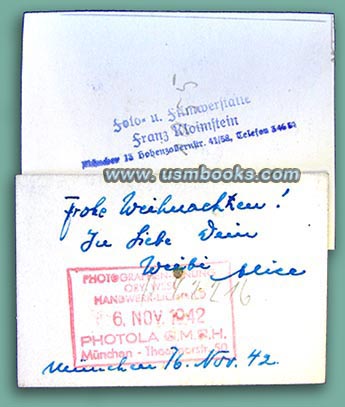 Foto- u. Filmwerstätte
Franz Kloimstein
München 13 Hohenzollernstr. 41/58, Telefon
www.usmbooks.com
Frohe Weihnachten!
In Liebe Dein
Weibi Alice
PHOTOGRAPHENINNUNG
HANDWERK-
6. NOV. 1942
PHOTOLA G.M.B.H.
München - 50
München 6. Nov. 42.